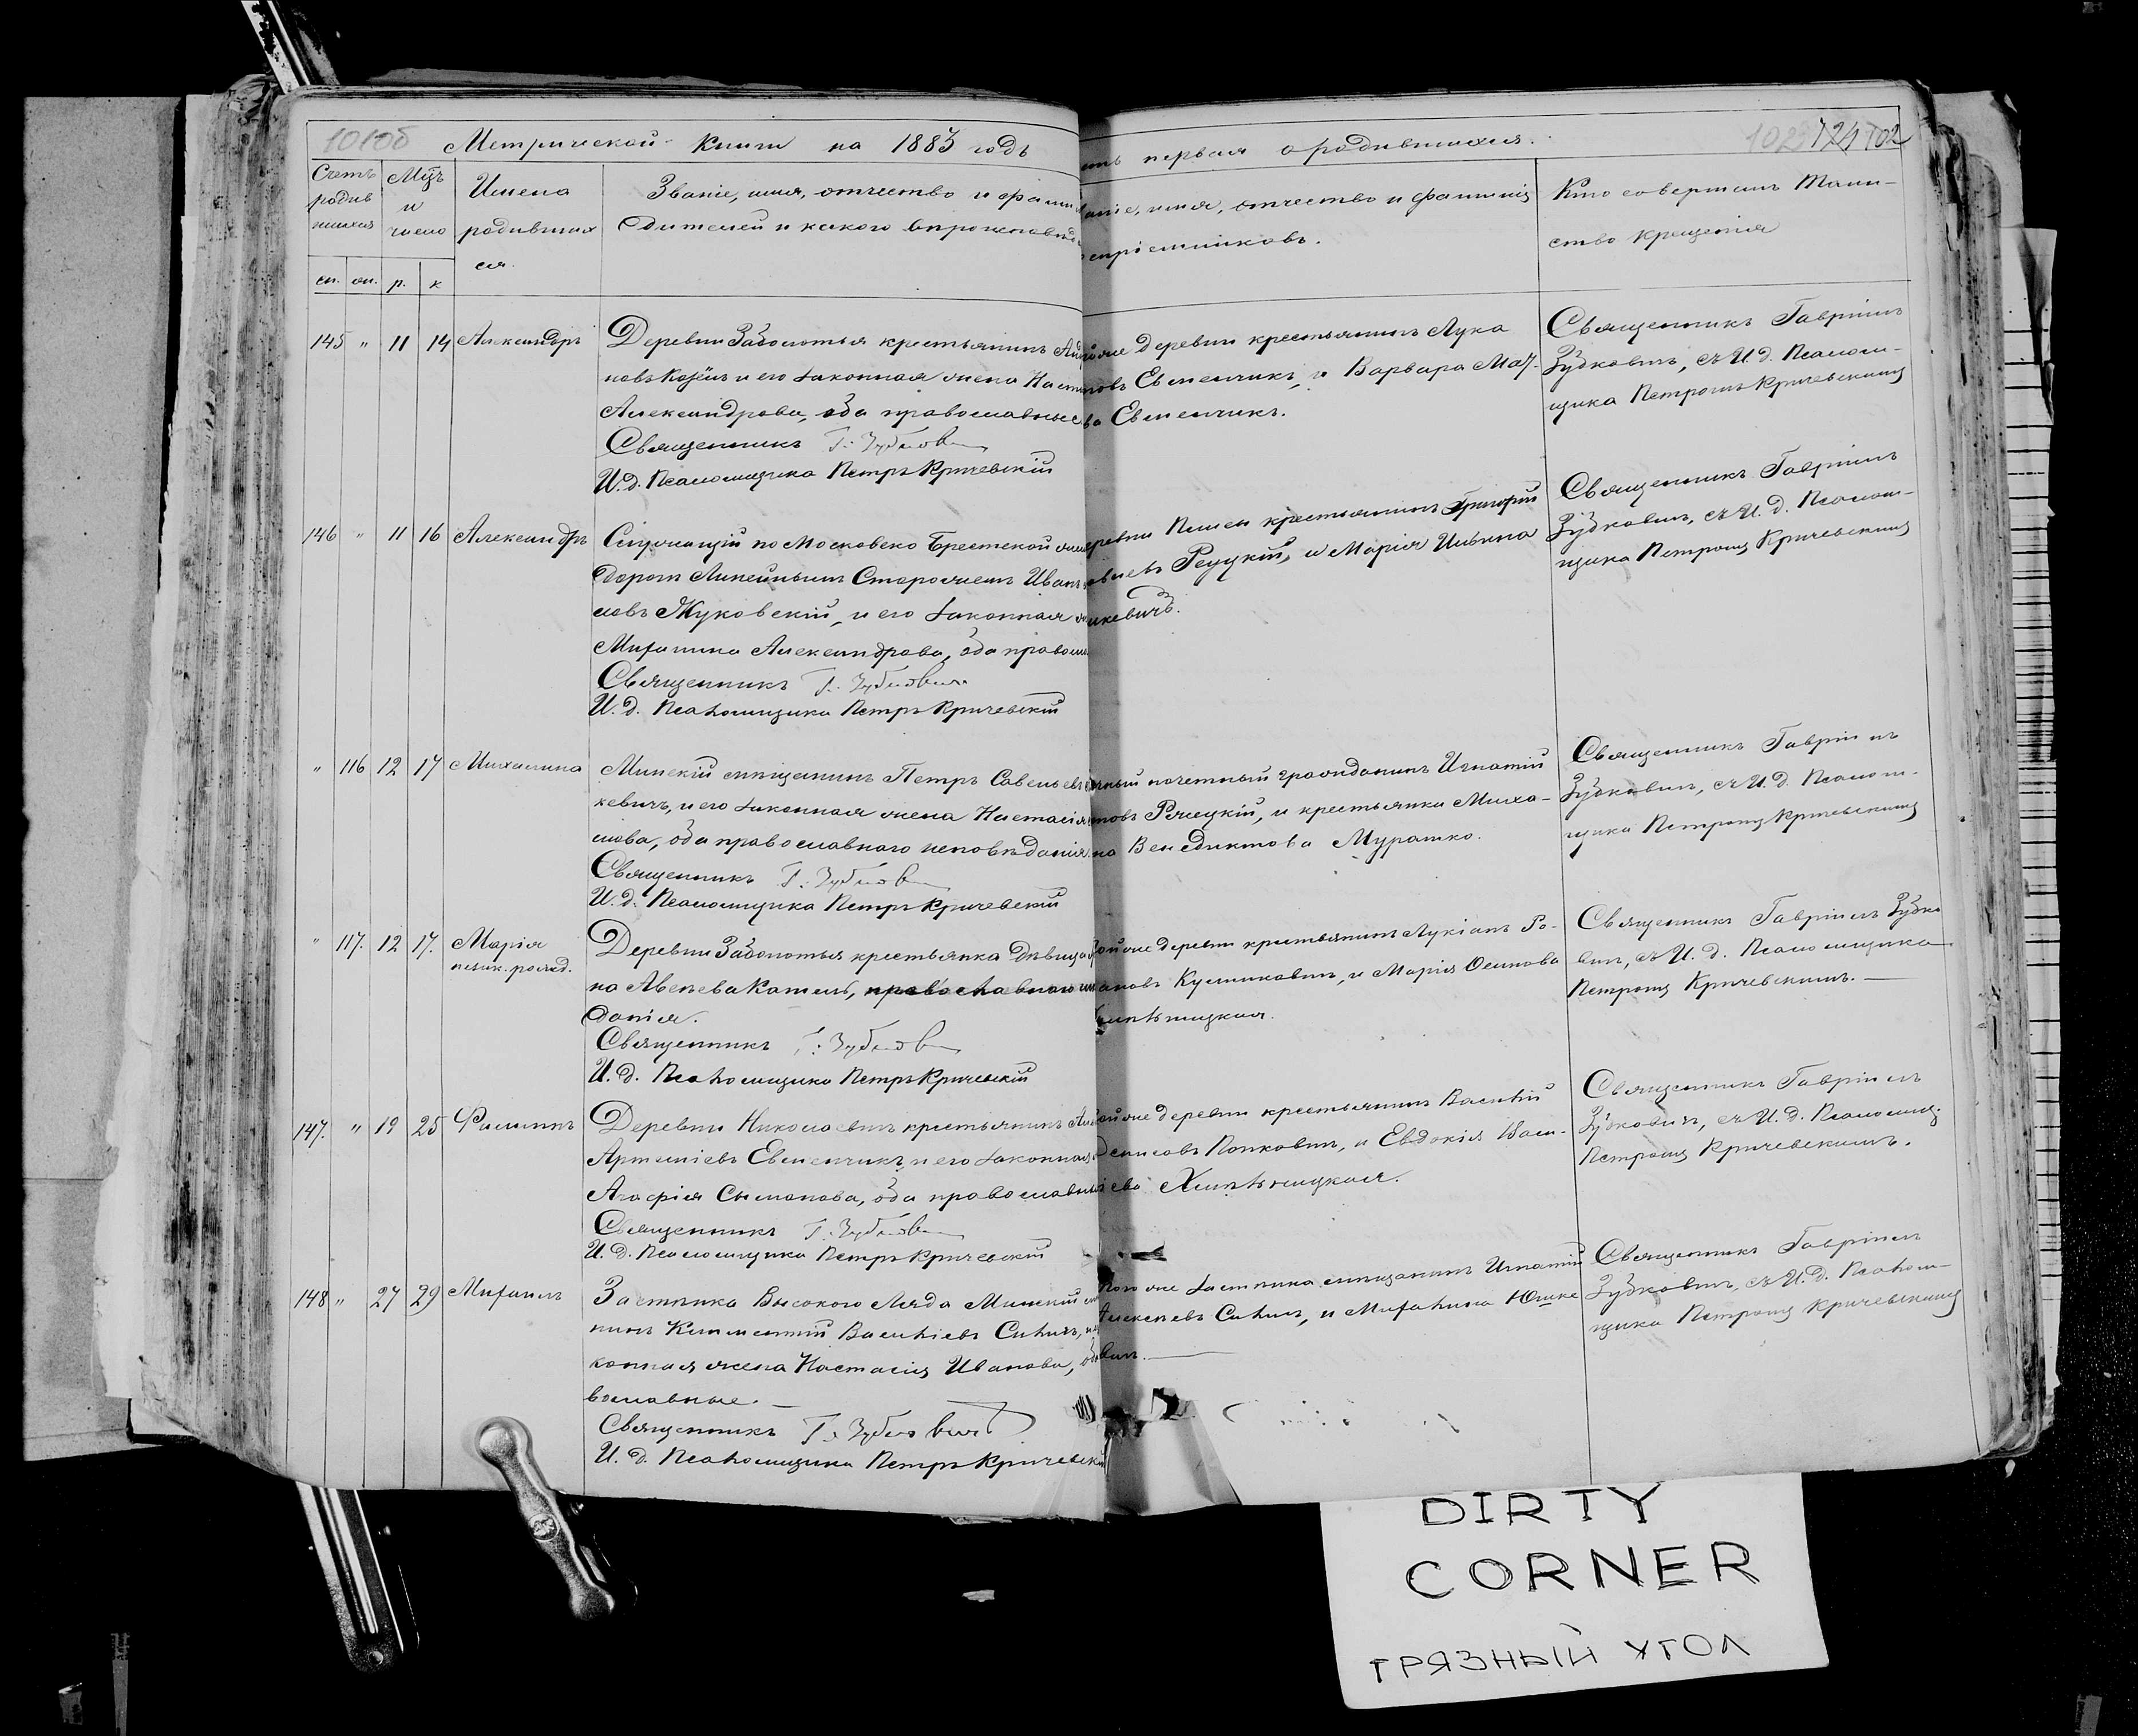 101об Метрической книги на 1883 годъ
первая о родившихся.
102 124 102
Счетъ родив шихся
Мц̃ъ и число
Имена родивших ся.
Званіе, имя, отчество и
дителей и какого
отчество и фамилія
воспріемниковъ.
Кто совершалъ Таин-
ство крещенія
м. р. к
145 " 11 14 Александръ
Деревни Заболотья крестьянинъ
новъ Козёлъ и его законная жена
Александрова, оба православные
Священникъ Г. Зубковичъ
И. д. Псаломщика Петръ Кричевскій
же деревни крестьянинъ Лука
Евменчикъ, и Варвара
Евменчикъ.
Священникъ Гавріилъ
Зубковичъ, съ И. д. Псалом-
щика Петромъ Кричевскимъ
146 " 11 16 Александръ
Служащій по Московско Брестской
дороге Линейнымъ Старожемъ Иванъ
Жуковскій, и его законная
Михалина Александрова, оба
Священникъ Г. Зубковичъ
И. д. Псаломщика Петръ Кричевскій
крестьянинъ Григорій
Реуцкій, и Марія Ильина
Священникъ Гавріилъ
Зубковичъ, съ И. д. Псалом-
щика Петромъ Кричевскимъ
" 116 12 17 Михалина
Минскій мѣщанинъ Петръ Савельевъ
кевичъ, и его законная жена Настасія
оба православного исповѣданія.
Священникъ Г. Зубковичъ
И. д. Псаломщика Петръ Кричевскій
почетный гражданинъ Игнатій
и крестьянка Миха-
Венедиктова Мурашко.
Священникъ Гавріилъ
Зубковичъ, съ И. д. Псалом-
щика Петромъ Кричевскимъ
" 117. 12 17. Марія
незак. рожд.
Деревни Заболотья крестьянка дѣвица
православного
данія.
Священникъ Г. Зубковичъ
И. д. Псаломщика Петръ Кричевскій
же деревни крестьянинъ Лукіанъ Ро-
Кулинковичъ, и Марія Осипова
Священникъ Гавріилъ Зубко
вичъ, съ И. д. Псаломщика
Петромъ Кричевскимъ.
147. " 19 25 Филиппъ
Деревни Николаевичъ крестьянинъ
Артеміевъ Евменчикъ и его законная
Агафія Сымонова, оба православные
Священникъ Г. Зубковичъ
И. д. Псаломщика Петръ Кричевскій
же деревни крестьянинъ Василій
Денисовъ Попковичъ, и Евдокія Васи-
ева Хмѣльницкая.
Священникъ Гавріилъ
Зубковичъ, съ И. д. Псаломщ.
Петромъ Кричевскимъ.
148 " 27 29 Михаилъ
Застѣнка Высокого Ляда Минскій
нинъ Климентій Васильевъ Силичъ,
конная жена Настасія Иванова,
вославные.
Священникъ Г. Зубковичъ
И. д. Псаломщика Петръ Кричевскій
же застѣнка мѣщанинъ Игнатій
Алексѣевъ Силичъ, и Михалина Юшке
вичъ.
Священникъ Гавріилъ
Зубковичъ, съ И. д. Псалом-
щика Петромъ Кричевскимъ
DIRTY
CORNER
ГРЯЗНЫЙ УГОЛ